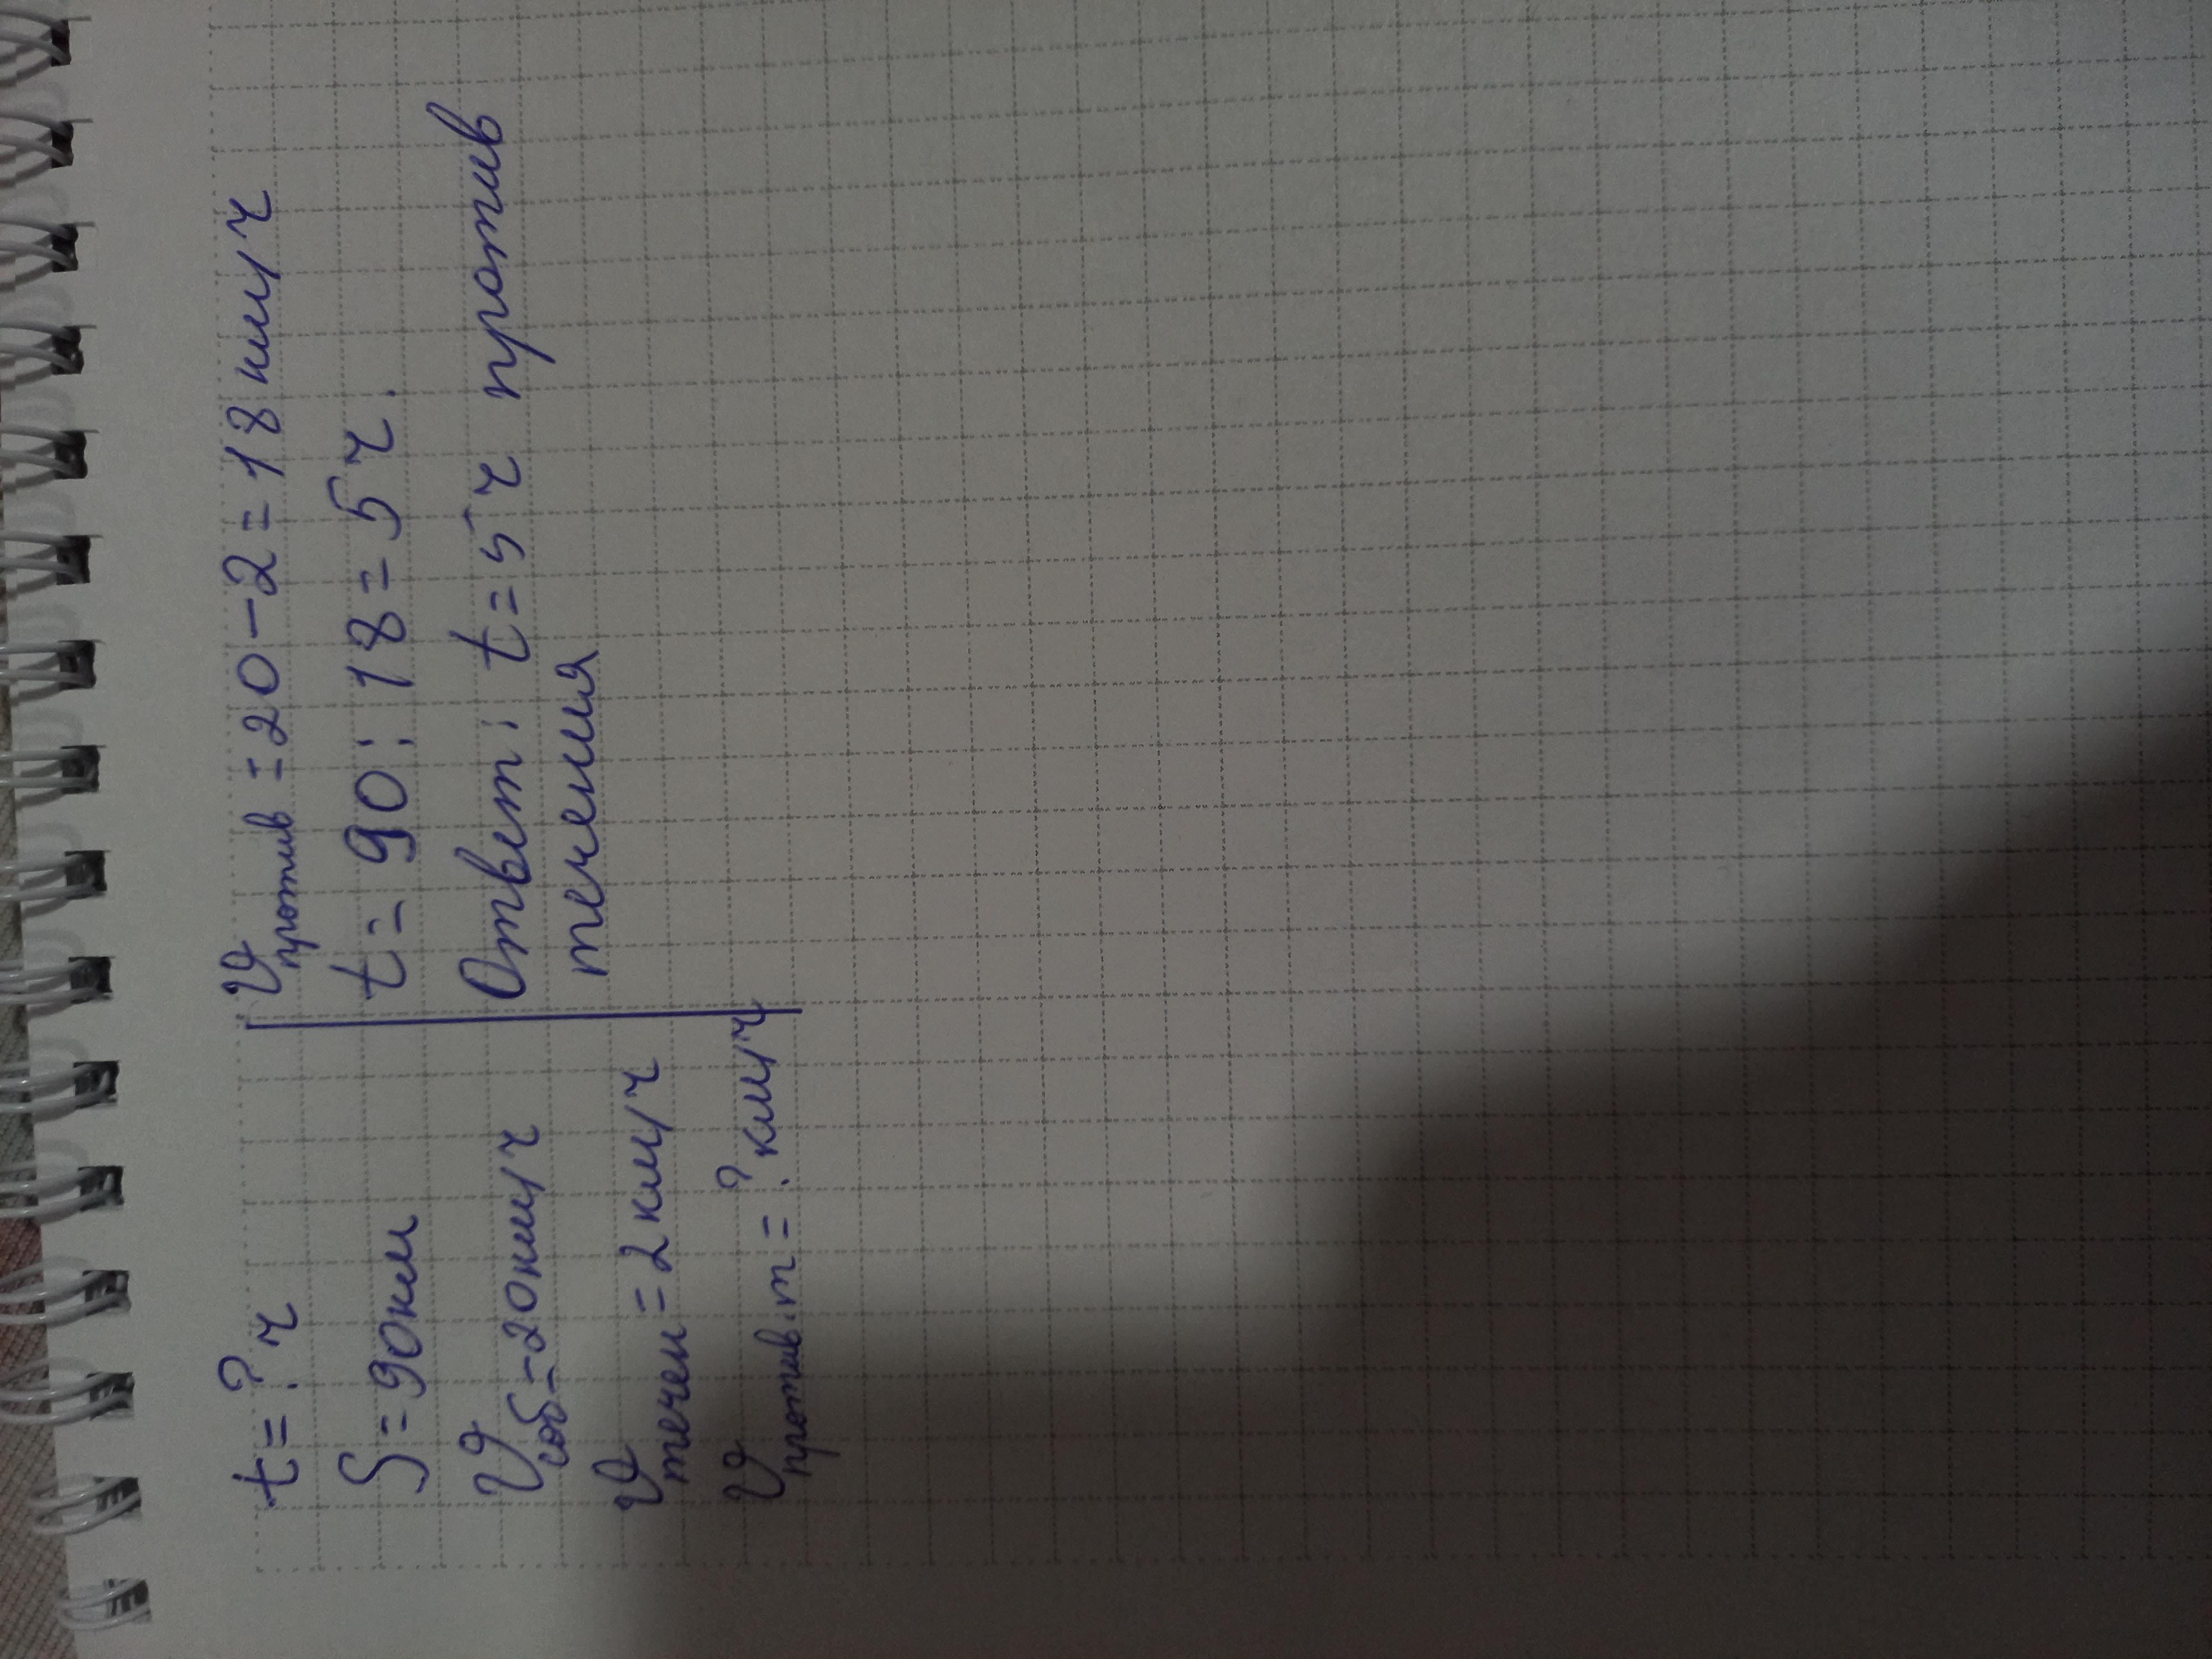 t = ? ч
S = 90км
υсоб = 20км/ч
υтечен = 2 км/ч
υпротив.т = ? км/ч
υпротив = 20 - 2 = 18 км/ч
t = 90 : 18 = 5 ч.
Ответ: t = 5 ч против
течения